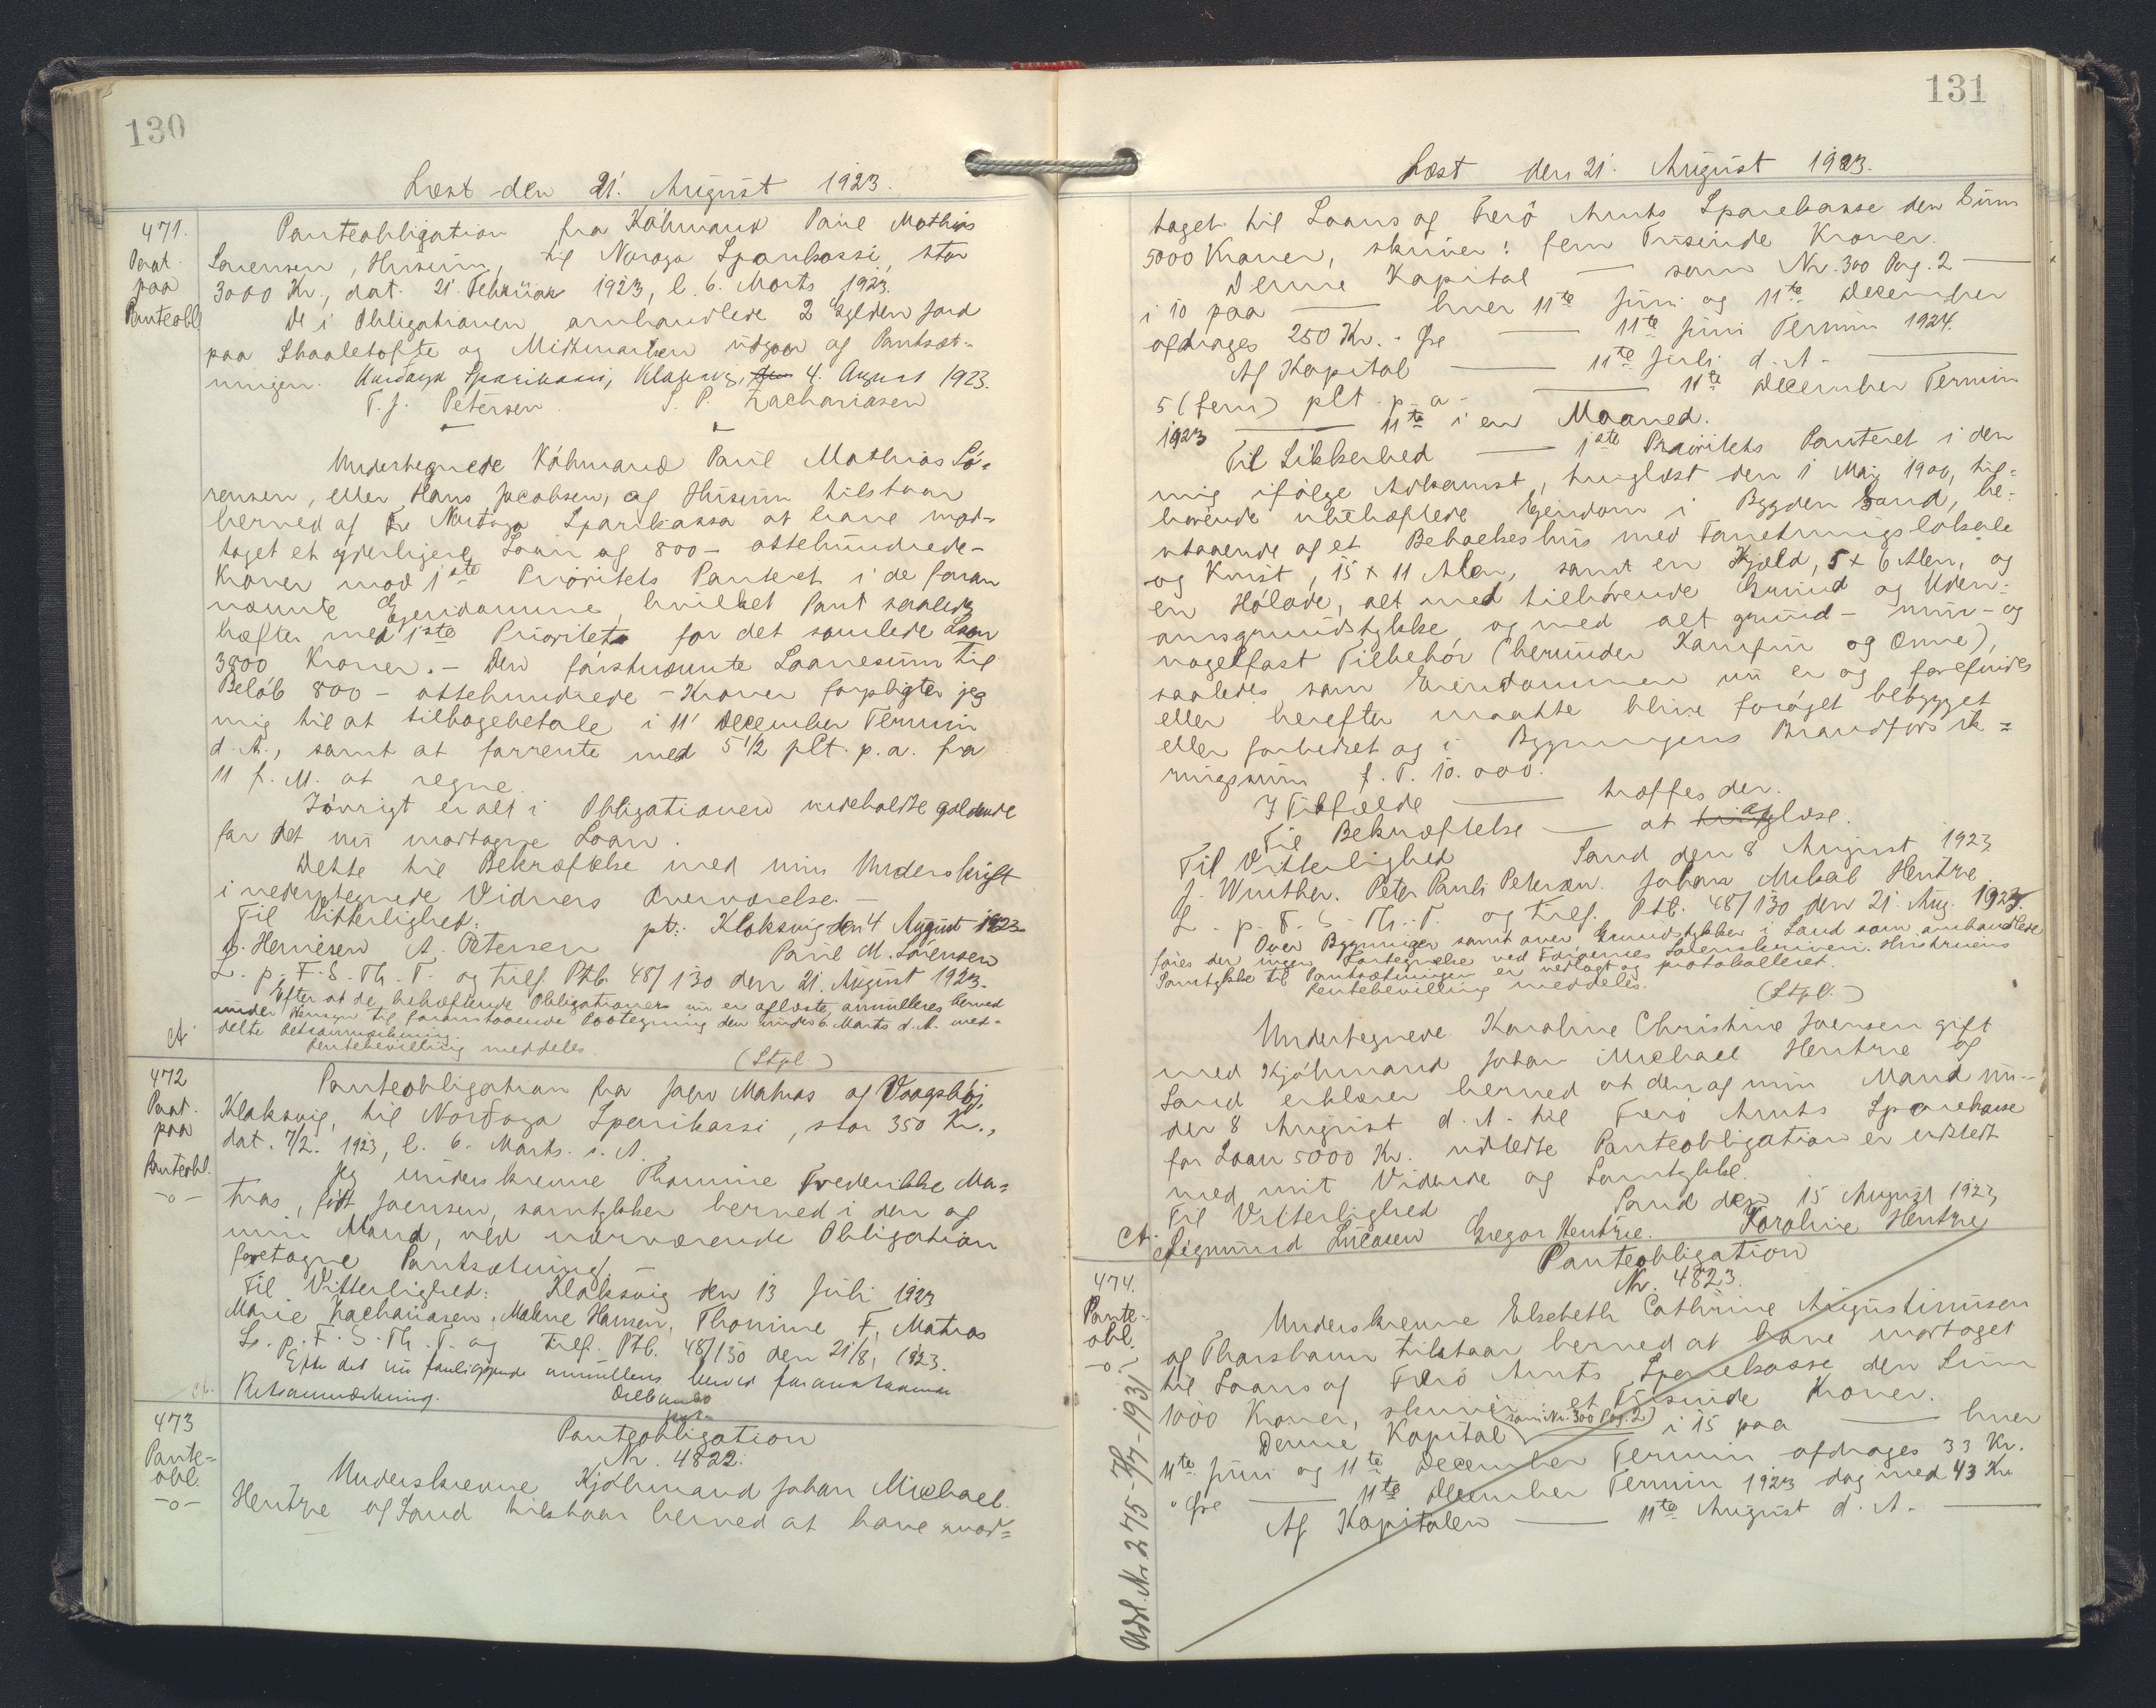 130
Læst den 21. August 1923.
471.
Paat.
paa
Panteobl
Panteobligation fra Kóhmand Paul Mathias
Sørensen, Húsum, til Norðoya Sparikassi, stor
3000 Kr., dat. 21. Februar 1923, l. 6. Marts 1923.
De i Obligationen omhandlede 2 Gylden Jord
paa Skaaletofte og Midtmarken udgaar af Pantsæt-
ningen. Nordoya Sparikassi, Klaksvig, den 4. August 1923.
T. J. Petersen. S. P. Zachariasen
Undertegnede Kóhmand Paul Mathias Só-
rensen, eller Hans Jacobsen, af Húsum tilstaar
herved af Nordoya Sparikassa at have mod-
taget et yderligere Laan af 800 – ottehundrede –
Kroner mod 1ste Prioritets Panteret i de foran
nævnte Ejendomme, hvilket Pant saaledes
hæfter med 1ste Prioritet for det samlede Laan
3800 Kroner. – Den fórstnævnte Laanesum til
Belób 800 – ottehundrede – Kroner forpligter jeg
mig til at tilbagebetale i 11' December Termin
d. A., samt at forrente med 5 1/2 pCt. p. a. fra
11 f. M. at regne.
Ióvrigt er alt i Obligationen indeholdte gældende
for det nu modtagne Laan.
Dette til Bekræftelse med min Underskrift
i nedentegnede Vidners Overværelse. –
Til Vitterlighed: pt. Klaksvig den 4 August 1923
A. Petersen Paul M. Sórensen
L. p. F. S. Th. T. og tilf. Ptb. 48/130 den 21. August 1923.
Efter at de behæftende Obligationer nu er aflæste, annulleres herved
under Hensyn til foranstaaende Paategning den under 6. Marts d. A. med-
delte Retsanmærkning.
Rentebevilling meddeles. (Stpl.)
Ct.
472
Paat.
paa
Panteobl.
–o–
Panteobligation fra Jógv Matras af Vaagsbój,
Klaksvig, til Norðoya Sparikassi, stor 350 Kr.,
dat. 7/2. 1923, l. 6. Marts. s. A.
Jeg underskrevne Thomine Frederikke Ma-
tras, fódt Joensen, samtykker herved i den af
min Mand, ved nærværende Obligation
foretagne Pantsætning. –
Til Vitterlighed: Klaksvig den 13 Juli 1923
Marie Zachariasen, Malene Hansen, Thomine F. Matras
L. p. F. S. Th. T. og tilf. Ptb. 48/130 den 21/8, 1923.
Efter det nu foreliggende annulleres herved foranstaaende
Retsanmærkning.
473
Pante-
obl.
–o–
Panteobligation
Nr. 4822.
Underskrevne Kjóbmand Johan Michael
Hentze af Sand tilstaar herved at have mod-
131
Læst den 21. August 1923.
taget til Laans af Færó Amts Sparekasse den Sum
5000 Kroner, skriver: fem Tusinde Kroner.
Denne Kapital — som Nr. 300 Pag. 2 —
i 10 paa — hver 11te Juni og 11te December
afdrages 250 Kr. - Øre — 11te Juni Termin 1924.
Af Kapital — 11te Juli d. A. —
5 (fem) pCt. p. a. — 11te December Termin
1923 — 11te i en Maaned.
Til Sikkerhed — 1ste Prioritets Panteret i den
mig ifólge Adkomst, tinglæst den 1 Maj 1900, til-
hórende ubehæftede Ejendom i Bygden Sand, be-
staaende af et Beboelseshus med Forretningslokale
og Kvist, 15 x 11 Alen, samt en Kjæld, 5 x 6 Alen, og
en Hólade, alt med tilhórende Grund og Uden-
omsgrundstykke og med alt grund- mur- og
nagelfast Tilbehór (herunder Komfur og Ovne),
saaledes som Ejendommen nu er og forefindes
eller herefter maatte blive forøget bebygget
eller forbedret og i Bygningens Brandforsik-
ringssum f. T. 10.000.
I Tilfælde — træffes der.
Til Bekræftelse — at aflæse.
Til Vitterlighed Sand den 8 August 1923
J. Winther. Peter Pauli Petersen. Johan Mikal Hentze
L. p. F. S. Th. T. og tilf. Ptb. 48/130 den 21. Aug. 1923.
Over Bygninger samt over Grundstykker i Sand som omhandlede
føres der ingen Fortegnelse ved Færøernes Sorenskriveri. Hustruens
Samtykke til Pantsætningen er vedlagt og protokolleret.
Rentebevilling meddeles. (Stpl.)
Undertegnede Karoline Christine Joensen gift
med Kjóbmand Johan Michael Hentze af
Sand erklærer herved at den af min Mand un-
der 8 August d. A. til Færó Amts Sparekasse
for Laan 5000 Kr. udstedte Panteobligation er udstedt
med mit Vidende og Samtykke.
Til Vitterlighed Sand den 15 August 1923
Sigmund Lucasen Gregor Hentze. Karoline Hentze
Ct.
474.
Pante-
obl.
–o–
Udsl. Nr. 275-7/7-1931
Panteobligation
Nr. 4823.
Underskrevne Elsebeth Cathrine Augustinussen
af Thorshavn tilstaar herved at have modtaget
til Laans af Færó Amts Sparekasse den Sum
1000 Kroner, skriver: et Tusinde Kroner.
Denne Kapital (som Nr. 300 Pag. 2) i 15 paa — hver
11te Juni og 11te December Termin afdrages 33 Kr.
" Øre — 11te December Termin 1923 dog med 43 Kr.
Af Kapitalen — 11te August d. A. —